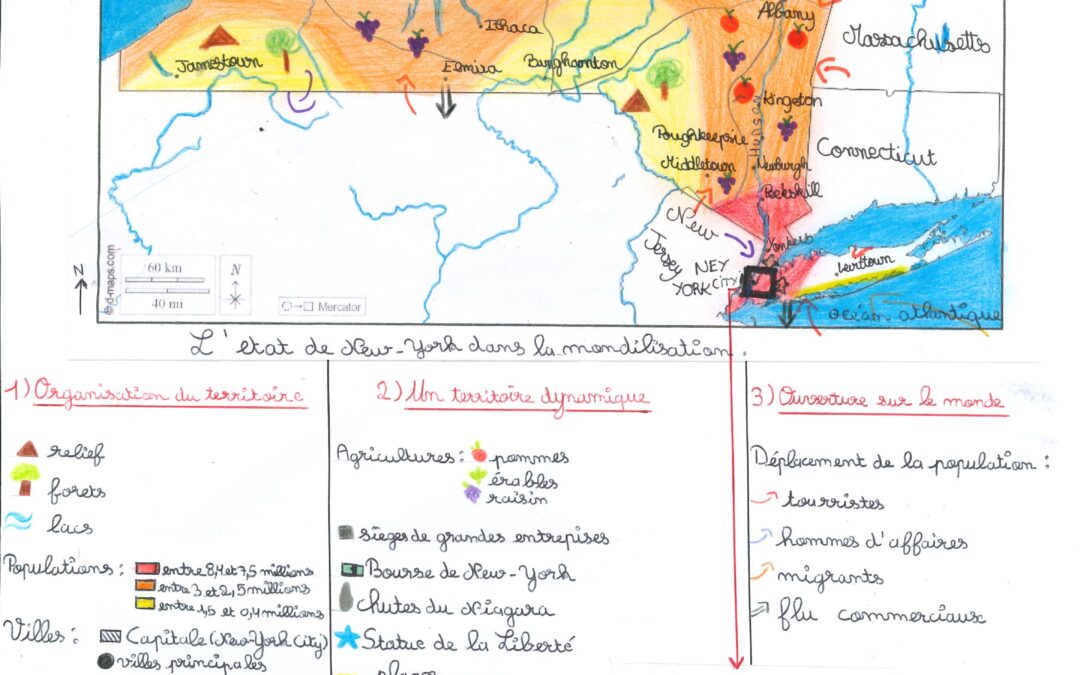 Albany
Ithaca
Massachusetts
Jamestown
Elmira
Binghamton
Kingston
Hudson
Poughkeepsie
Connecticut
Middletown
Newburgh
Peekskill
New
Jersey
Yonkers
NEY
YORK CITY
60 km
40 mi
N
N
Mercator
©d-maps.com
océan atlantique
L'etat de New-York dans la mondilisation.
1) Organisation du territoire
relief
forets
lacs
Populations :
entre 8,4 et 7,5 millions
entre 3 et 2,5 millions
entre 1,5 et 0,4 millions
Villes :
Capitale (New-York City)
villes principales
2) Un territoire dynamique
Agricultures : pommes
érables
raisin
sièges de grandes entrepises
Bourse de New-York
chutes du Niagara
Statue de la Liberté
3) Ouverture sur le monde
Déplacement de la population :
tourristes
hommes d'affaires
migrants
flu commerciaux